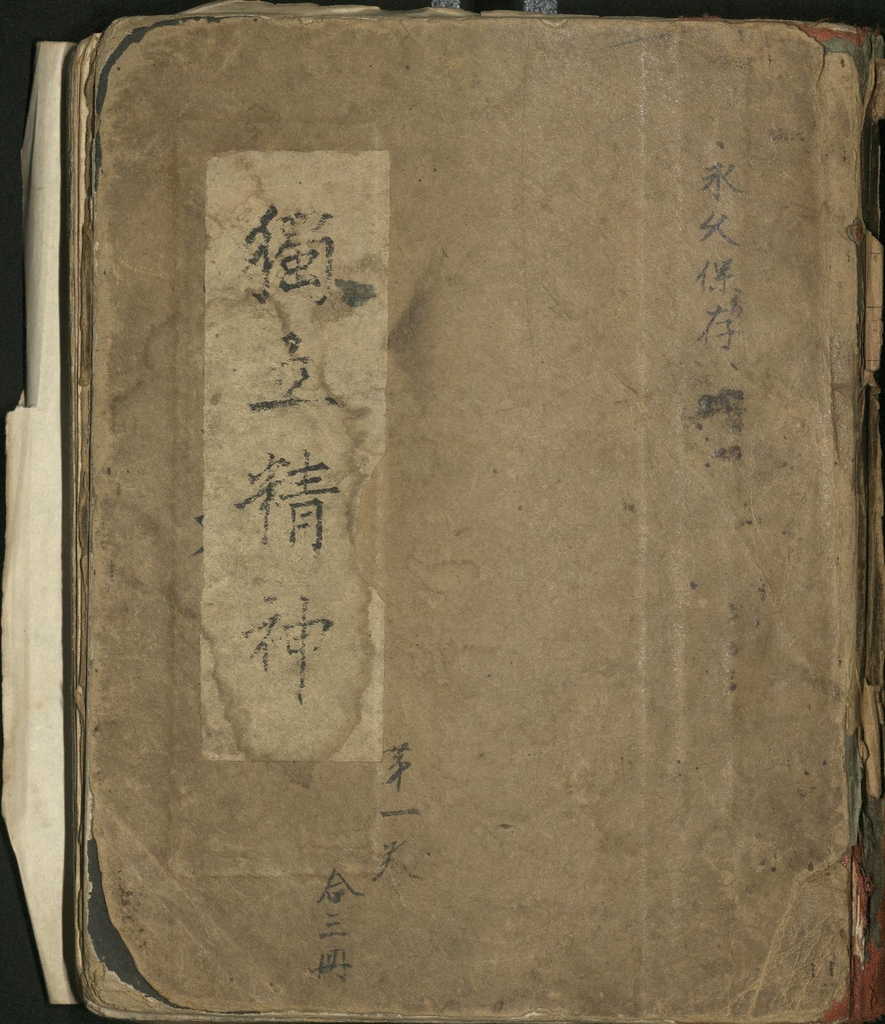 永久保存
獨立精神
第一
合三冊